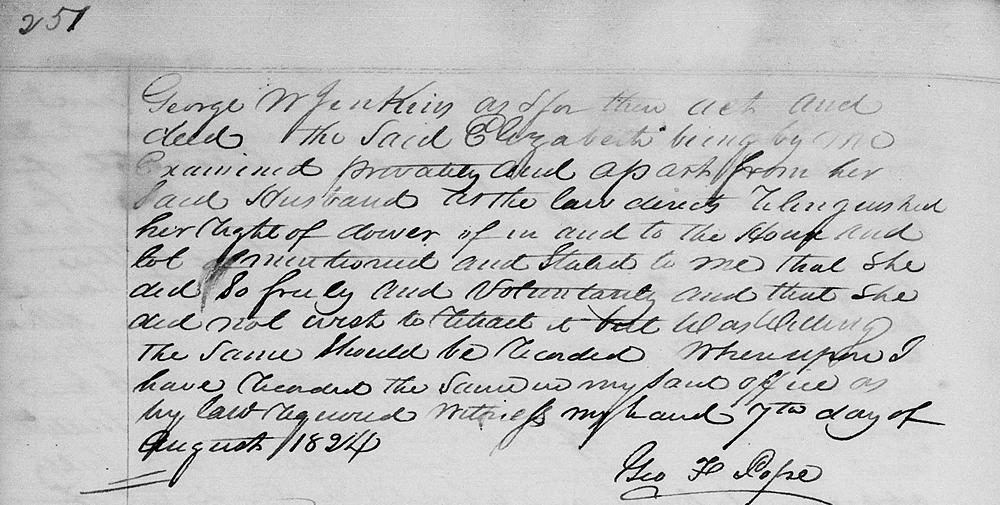 251
George W Jenkins as & for their act and
deed the said Elizabeth being by me
Examined privately and apart from her
said Husband as the law directs relinquished
her right of dower, of in and to the House and
lot mentioned and stated to me that she
did so freely and Voluntarily and that she
did not wish to retract it but Was Willing
the same should be recorded Whereupon I
have recorded the same in my said office as
by law required Witness my hand 7th day of
August 1824
Geo F Pope